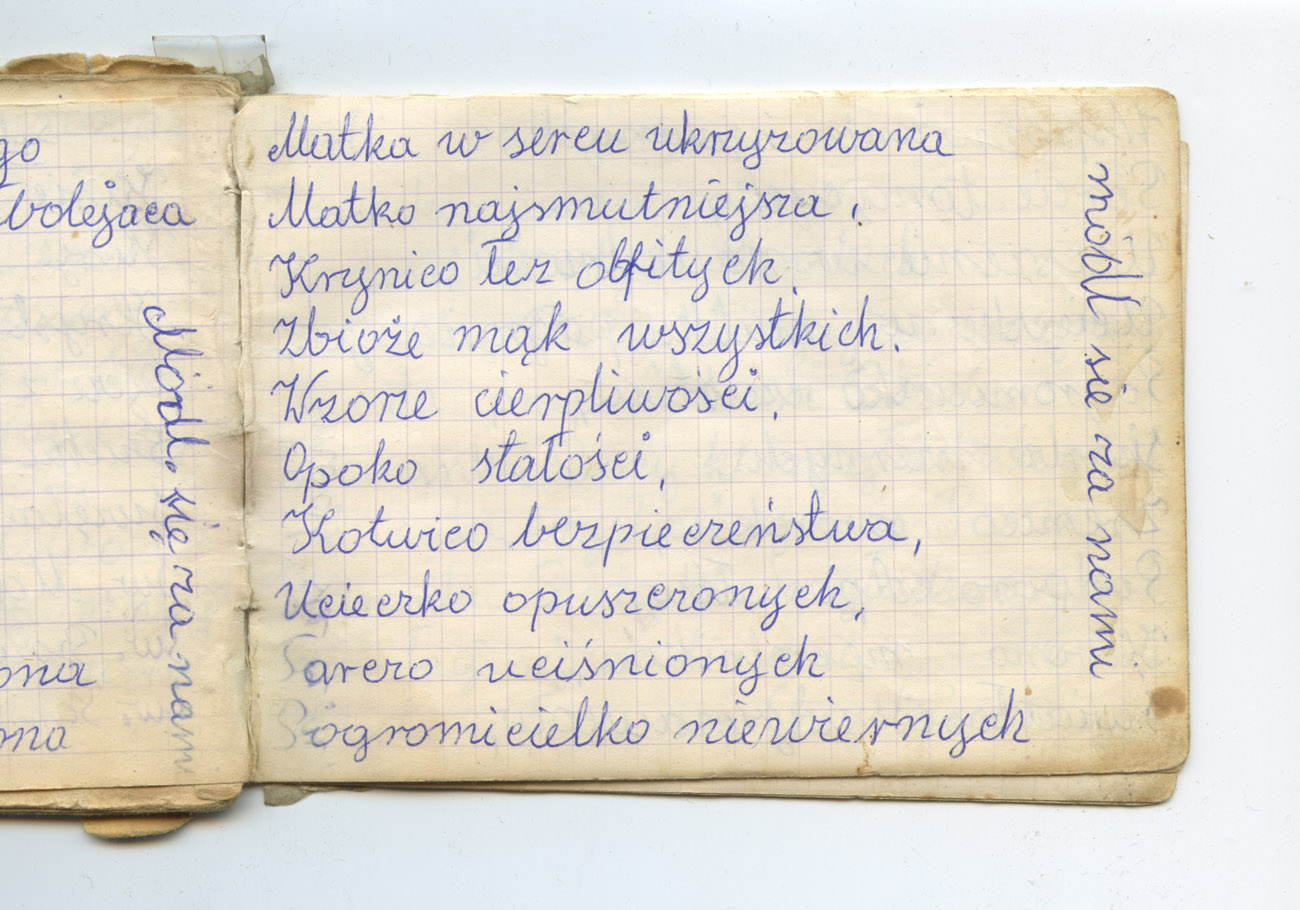 go
bolejaca
ona
ona
Módl. się za nami
Matka w sercu ukrzyzowana
Matko najsmutniejsza,
Krynico łez obfitych,
Zbioże mąk wszystkich.
Wzorze cierpliwości,
Opoko stałości,
Kotwico bezpieczeństwa,
Ucieczko opuszczonych,
Tarczo uciśnionych
Pogromicielko niewiernych
módl sie za nami